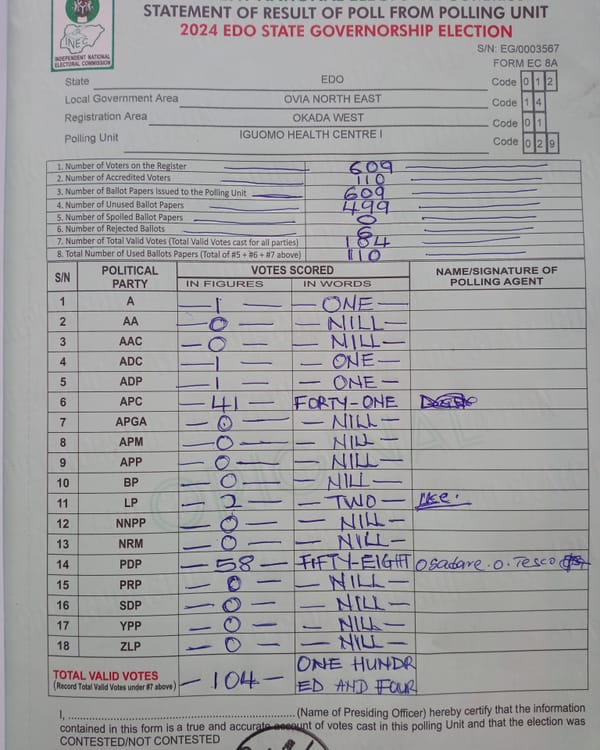 STATEMENT OF RESULT OF POLL FROM POLLING UNIT
2024 EDO STATE GOVERNORSHIP ELECTION
INEC
INDEPENDENT NATIONAL
ELECTORAL COMMISSION
S/N: EG/0003567
FORM EC 8A
State EDO Code 0 1 2
Local Government Area OVIA NORTH EAST Code 1 4
Registration Area OKADA WEST Code 0 1
Polling Unit IGUOMO HEALTH CENTRE I Code 0 2 9
1. Number of Voters on the Register 609
2. Number of Accredited Voters 110
3. Number of Ballot Papers Issued to the Polling Unit 609
4. Number of Unused Ballot Papers 499
5. Number of Spoiled Ballot Papers 0
6. Number of Rejected Ballots 6
7. Number of Total Valid Votes (Total Valid Votes cast for all parties) 184
8. Total Number of Used Ballots Papers (Total of #5 + #6 + #7 above) 110
S/N POLITICAL PARTY VOTES SCORED NAME/SIGNATURE OF POLLING AGENT
IN FIGURES IN WORDS
1 A - 1 - - ONE -
2 AA - 0 - - NILL -
3 AAC - 0 - - NILL -
4 ADC - 1 - - ONE -
5 ADP - 1 - - ONE -
6 APC - 41 - FORTY-ONE
7 APGA - 0 - - NILL -
8 APM - 0 - - NILL -
9 APP - 0 - - NILL -
10 BP - 0 - - NILL -
11 LP - 2 - - TWO -
12 NNPP - 0 - - NILL -
13 NRM - 0 - - NILL -
14 PDP - 58 - FIFTY-EIGHT Osadare .O. Tesco
15 PRP - 0 - - NILL -
16 SDP - 0 - - NILL -
17 YPP - 0 - - NILL -
18 ZLP - 0 - - NILL -
TOTAL VALID VOTES - 104 - ONE HUNDR
(Record Total Valid Votes under #7 above) ED AND FOUR
I, (Name of Presiding Officer) hereby certify that the information
contained in this form is a true and accurate account of votes cast in this polling Unit and that the election was
CONTESTED/NOT CONTESTED